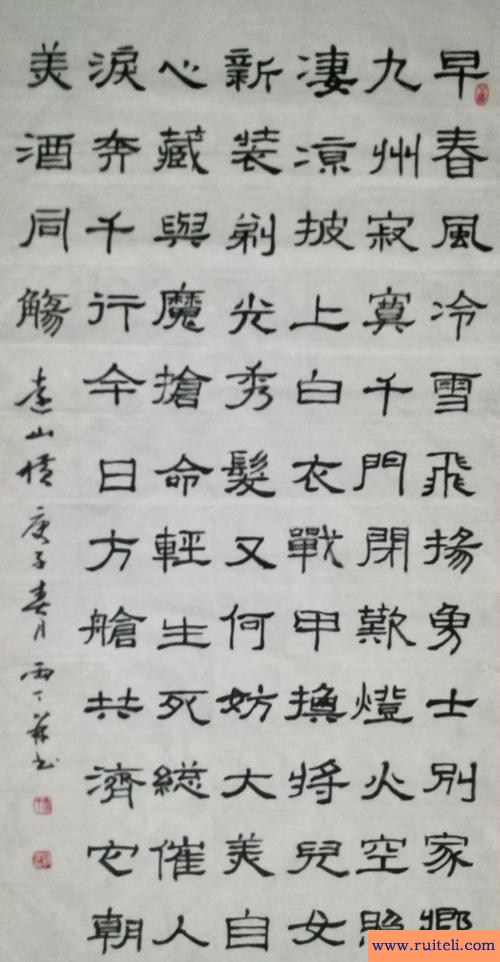 早春風冷雪飛揚勇士別家鄉
九州寂寞千門閉歎燈火空照
凄凉披上白衣戰甲換將兒女
新裝剃光秀髮又何妨大美自
心藏與魔搶命輕生死總催人
淚奔千行今日方艙共濟它朝
美酒同觴
山情 庚子春月 書
www.ruiteli.com